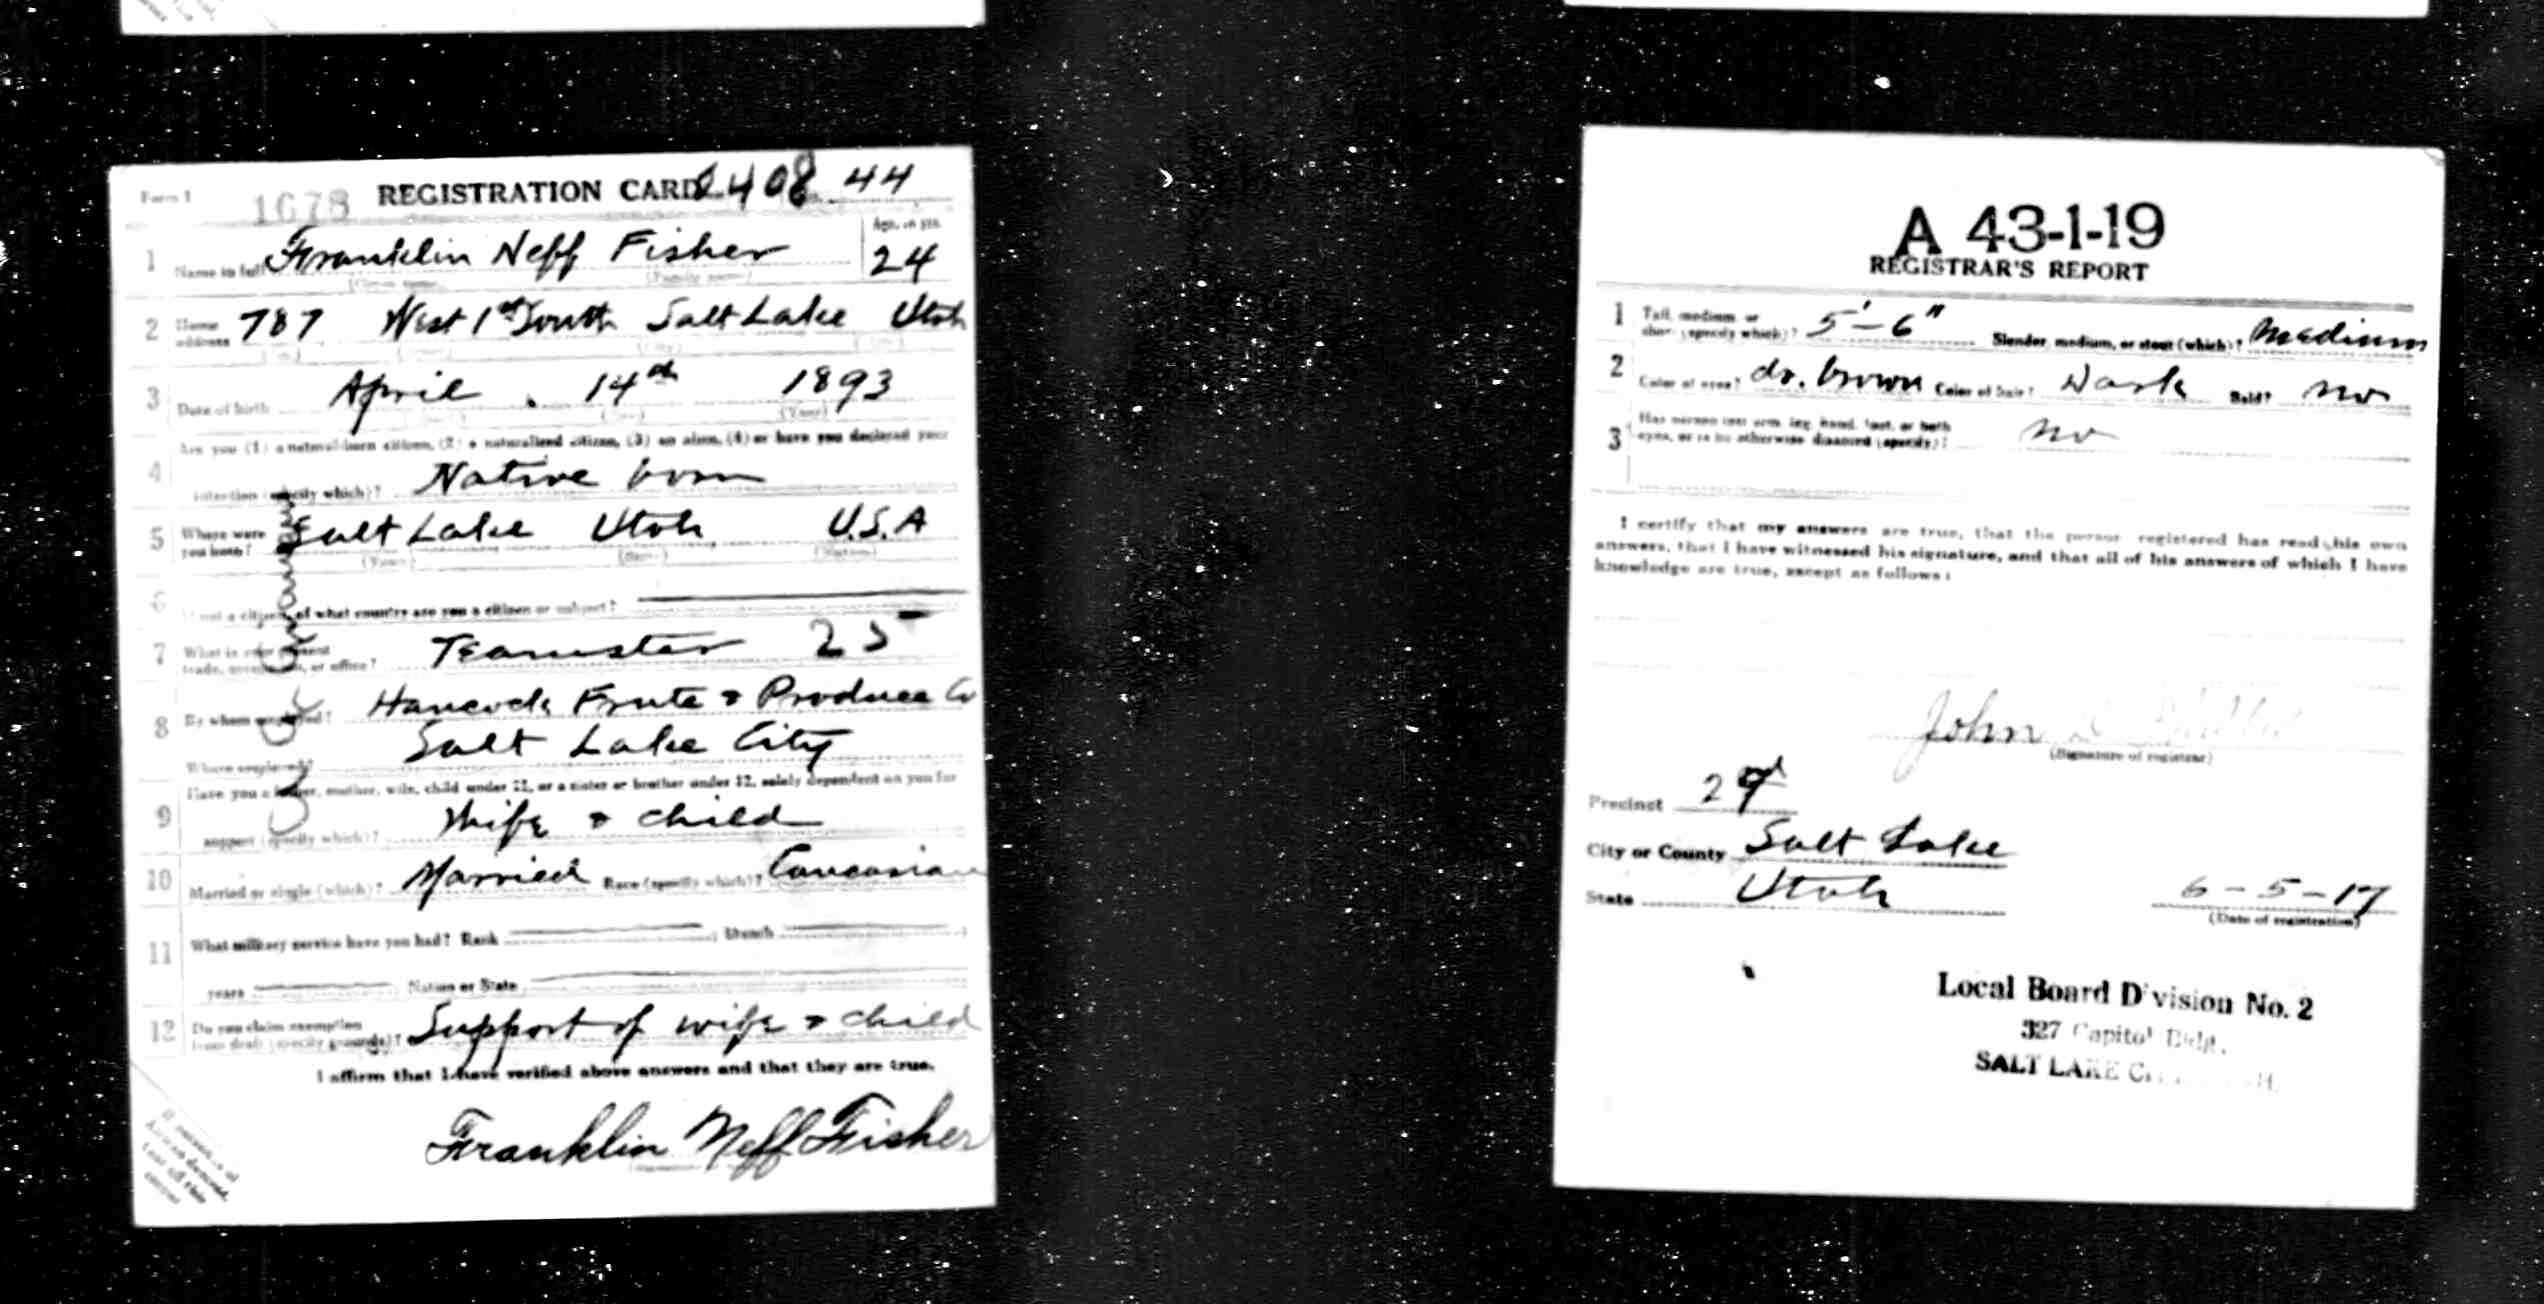 Form 1 1678 REGISTRATION CARD 1408 No. 44
1 Name in full Franklin Neff Fisher Age, in yrs. 24
(Given name) (Family name)
2 Home address 787 West 1st South Salt Lake Utah
(No.) (Street) (City) (State)
3 Date of birth April 14th 1893
(Month) (Day) (Year)
4 Are you (1) a natural-born citizen, (2) a naturalized citizen, (3) an alien, (4) or have you declared your
intention (specify which)? Native born
5 Where were you born? Salt Lake Utah U.S.A
(Town) (State) (Nation)
6 If not a citizen, of what country are you a citizen or subject?
7 What is your present trade, occupation, or office? Teamster 25
8 By whom employed? Hancock Frute & Produce Co
Where employed? Salt Lake City
9 Have you a father, mother, wife, child under 12, or a sister or brother under 12, solely dependent on you for
support (specify which)? Wife & child
10 Married or single (which)? Married Race (specify which)? Caucasian
11 What military service have you had? Rank ; Branch ;
years ; Nation or State
12 Do you claim exemption from draft (specify grounds)? Support of wife & child
I affirm that I have verified above answers and that they are true.
Franklin Neff Fisher
If person is of
African descent,
tear off this
corner
A 43-1-19
REGISTRAR'S REPORT
1 Tall, medium, or short (specify which)? 5'-6" Slender, medium, or stout (which)? Medium
2 Color of eyes? dr. brown Color of hair? Dark Bald? no
3 Has person lost arm, leg, hand, foot, or both
eyes, or is he otherwise disabled (specify)? no
I certify that my answers are true, that the person registered has read his own
answers, that I have witnessed his signature, and that all of his answers of which I have
knowledge are true, except as follows:
John
(Signature of registrar)
Precinct
City or County Salt Lake
State Utah 6-5-17
(Date of registration)
Local Board Division No. 2
327 Capitol Bldg.
SALT LAKE